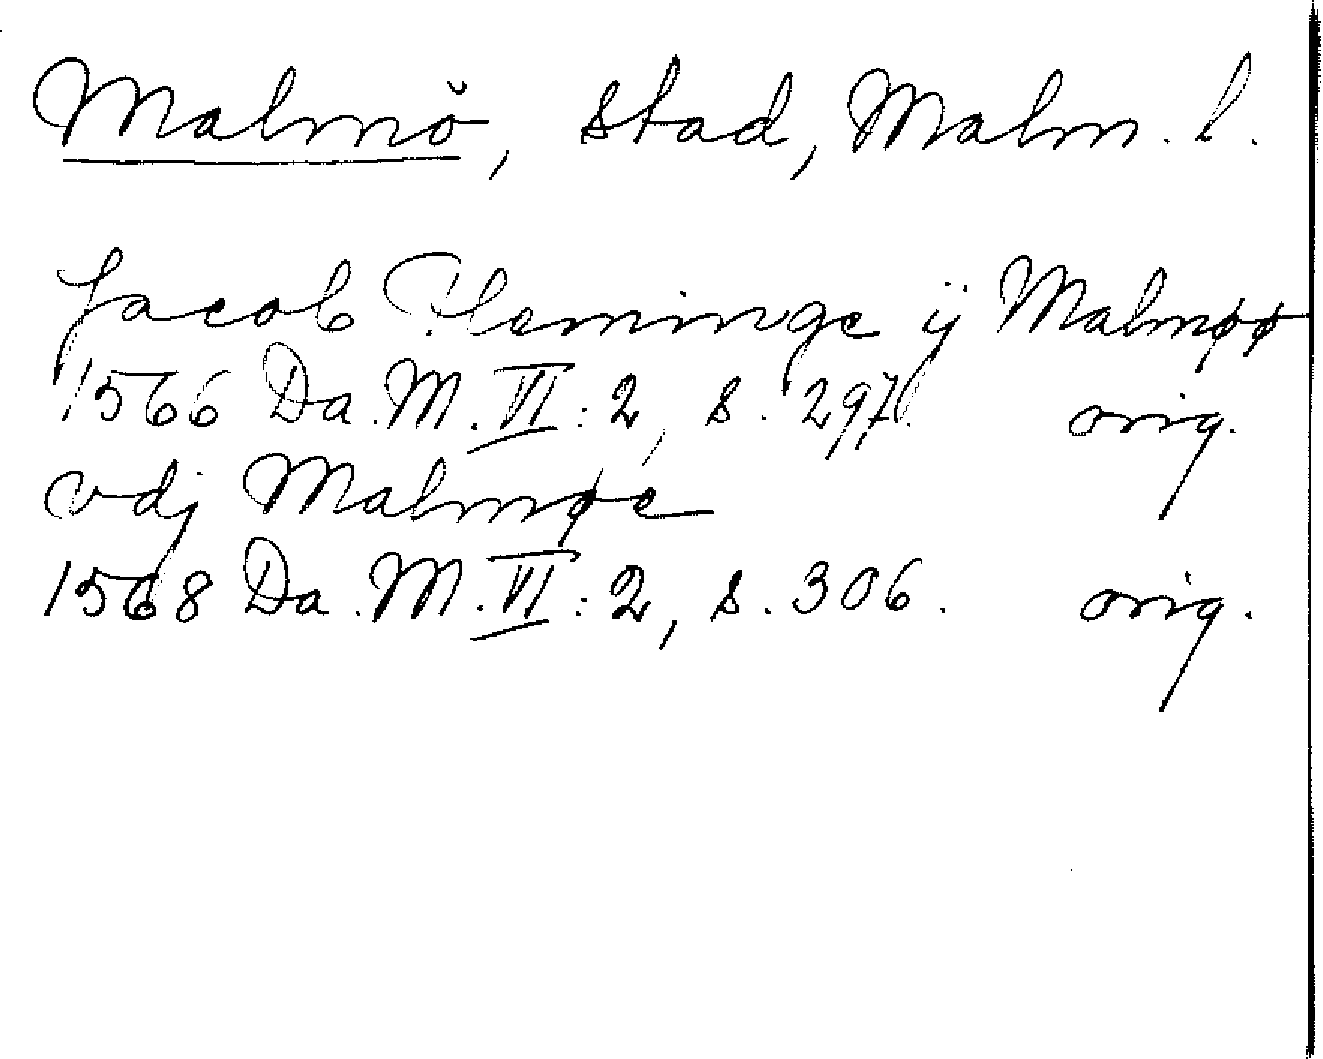 Malmö, stad, Malm. l.
Jacob Fleminge ÿ Malmøø
1566 Da. M. VI: 2, s. 297. orig.
vdj Malmøe
1568 Da. M. VI: 2, s. 306. orig.